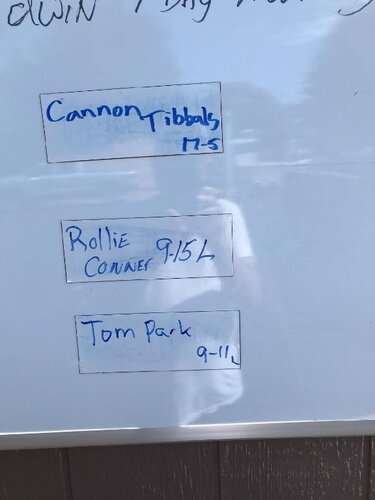 Cannon Tibbals
17-5
Rollie
Conner 9-15L
Tom Park
9-11L